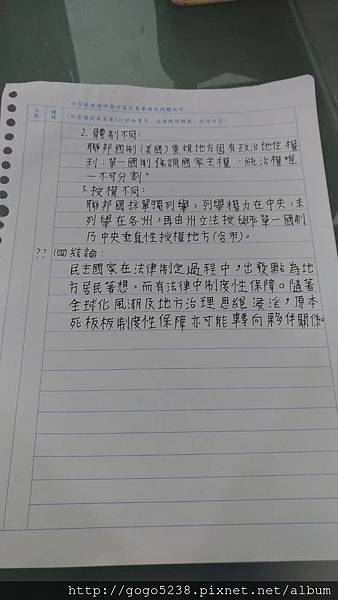 2. 體制不同:
聯邦國制(美國)重視地方固有政治地位權
利;單一國制強調國家主權、統治權唯
一不可分割。
3. 授權不同:
聯邦國採單獨列舉,列舉權力在中央,未
列舉在各州,再由州立法授與
單一國制
乃中央垂直性授權地方(合市)。
(四)結論:
民主國家在法律制定過程中,出發點為地
方居民著想,而有法律中制度性保障。隨著
全球化風潮及地方治理思維浸淫,原本
死板板制度性保障亦可能轉向夥伴關係。
http://gogo5238.pixnet.net/album